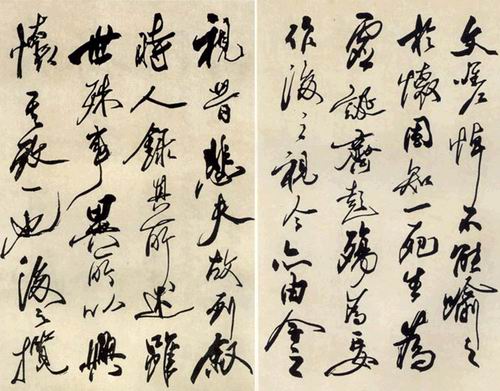 文嗟悼不能喻之
於懷固知一死生為
虛誕齊彭殤為妄
作後之視今亦由今之
視昔悲夫故列敘
時人錄其所述雖
世殊事異所以興
懷其致一也後之攬